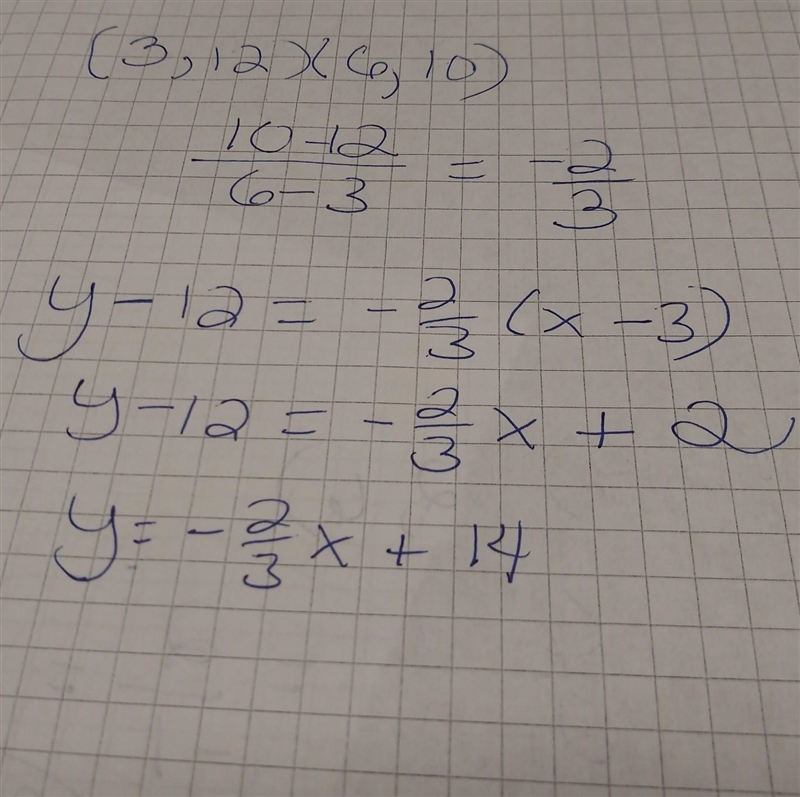 (3,12)(6,10)
10-12/6-3 = -2/3
y-12 = -2/3(x-3)
y-12 = -2/3x+2
y = -2/3x+14